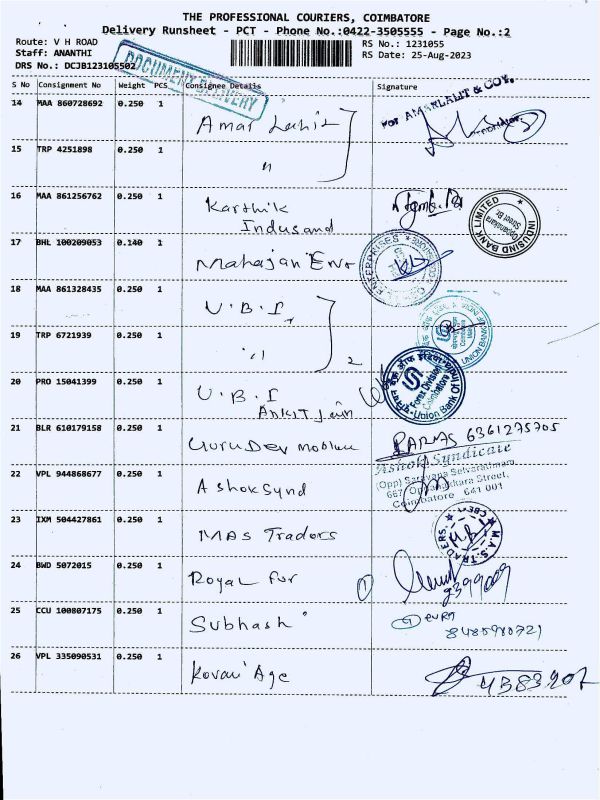 THE PROFESSIONAL COURIERS, COIMBATORE
Delivery Runsheet - PCT - Phone No.:0422-3505555 - Page No.:2
Route: V H ROAD
RS No.: 1231055
Staff: ANANTHI
RS Date: 25-Aug-2023
DRS No.: DCJB123105502
DOCUMENT DELIVERY
S No Consignment No Weight PCS Consignee Details Signature
14 MAA 860728692 0.250 1 Amar Lalit
For AMARLALIT & COY.
15 TRP 4251898 0.250 1 "
16 MAA 861256762 0.250 1 Karthik
Indusand
INDUSIND BANK LIMITED
17 BHL 100209053 0.140 1 Mahajan Ent
ENTERPRISES
18 MAA 861328435 1 0.250 U.B.I
UNION BANK OF INDIA
19 TRP 6721939 0.250 1 "
2
20 PRO 15041399 0.250 1 U.B.I
Ankit Jain
Forex Division
Coimbatore
Union Bank Of
21 BLR 610179158 0.250 1 Guru Dev
PARAS 6361275705
22 VPL 944868677 0.250 1 Ashok Synd
Ashok Syndicate
(Opp) Saravana Selvarathinam
667, Oppanakkara Street,
Coimbatore 641 001
23 IXM 504427861 0.250 1 MAS Tradors
M.A.S. TRADERS
CBE-1
24 BWD 5072015 0.250 1 Royal Fur
25 CCU 100807175 0.250 1 Subhash
26 VPL 335090531 0.250 1 Kovai Age